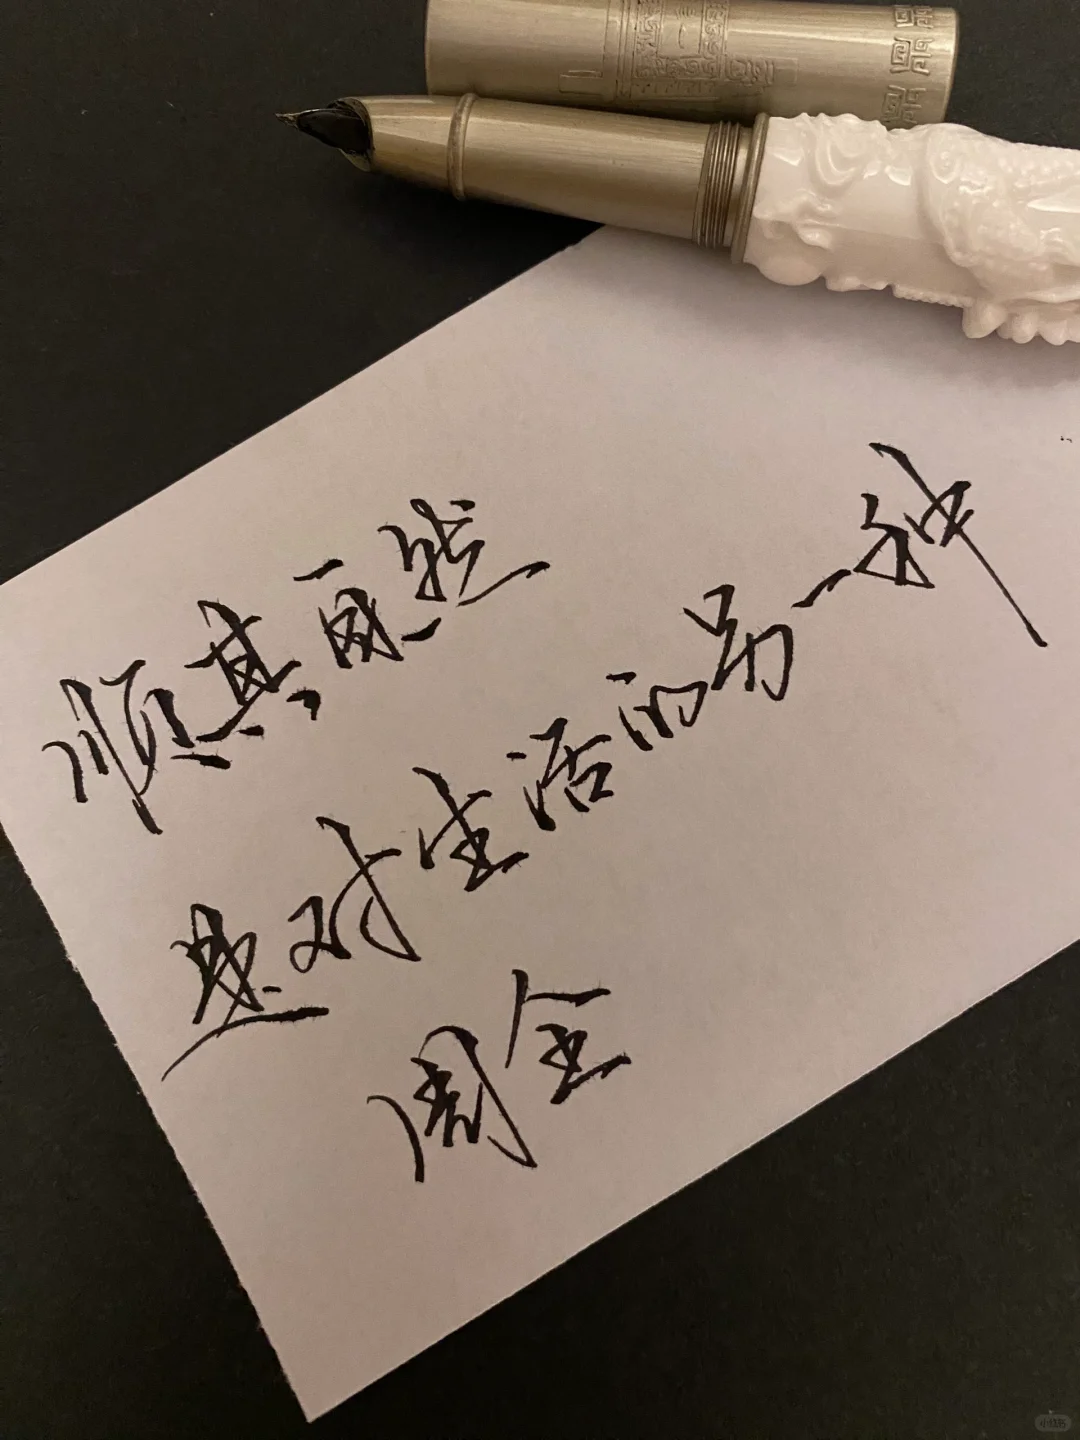 顺其自然
是对生活的另一种
周全
小红书